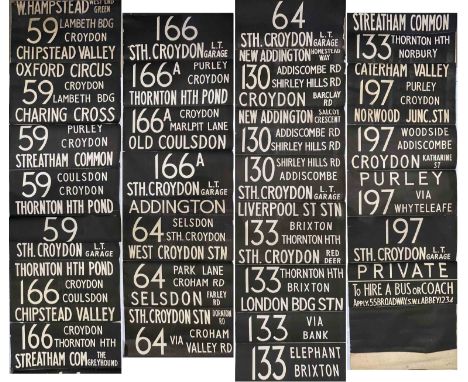 W. HAMPSTEAD WEST END GREEN
59 LAMBETH BDG
CROYDON
CHIPSTEAD VALLEY
OXFORD CIRCUS
59 CROYDON
LAMBETH BDG
CHARING CROSS
59 PURLEY
CROYDON
STREATHAM COMMON
59 COULSDON
CROYDON
THORNTON HTH POND
59
STH. CROYDON L.T. GARAGE
THORNTON HTH POND
166 CROYDON
COULSDON
CHIPSTEAD VALLEY
166 CROYDON
THORNTON HTH
STREATHAM COM THE GREYHOUND
166
STH. CROYDON L.T. GARAGE
166A PURLEY
CROYDON
THORNTON HTH POND
166A CROYDON
MARLPIT LANE
OLD COULSDON
166A
STH. CROYDON L.T. GARAGE
ADDINGTON
64 SELSDON
STH. CROYDON
WEST CROYDON STN
64 PARK LANE
CROHAM RD
SELSDON FARLEY RD
STH. CROYDON STN
64 VIA CROHAM
VALLEY RD
64
STH. CROYDON L.T. GARAGE
NEW ADDINGTON HOMESTEAD WAY
130 ADDISCOMBE RD
SHIRLEY HILLS RD
CROYDON BARCLAY RD
NEW ADDINGTON SALCOT CRESCENT
130 ADDISCOMBE RD
SHIRLEY HILLS RD
130 SHIRLEY HILLS RD
ADDISCOMBE
STH. CROYDON L.T. GARAGE
LIVERPOOL ST STN
133 BRIXTON
THORNTON HTH
STH. CROYDON RED DEER
133 THORNTON HTH
BRIXTON
LONDON BDG STN
133 VIA
BANK
133 ELEPHANT
BRIXTON
STREATHAM COMMON
133 THORNTON HTH
NORBURY
CATERHAM VALLEY
197 PURLEY
CROYDON
NORWOOD JUNC. STN
197 WOODSIDE
ADDISCOMBE
CROYDON KATHARINE ST
PURLEY
197 VIA
WHYTELEAFE
197
STH. CROYDON L.T. GARAGE
PRIVATE
TO HIRE A BUS OR COACH
APPLY. 55 BROADWAY. S.W.1. ABBEY 1234